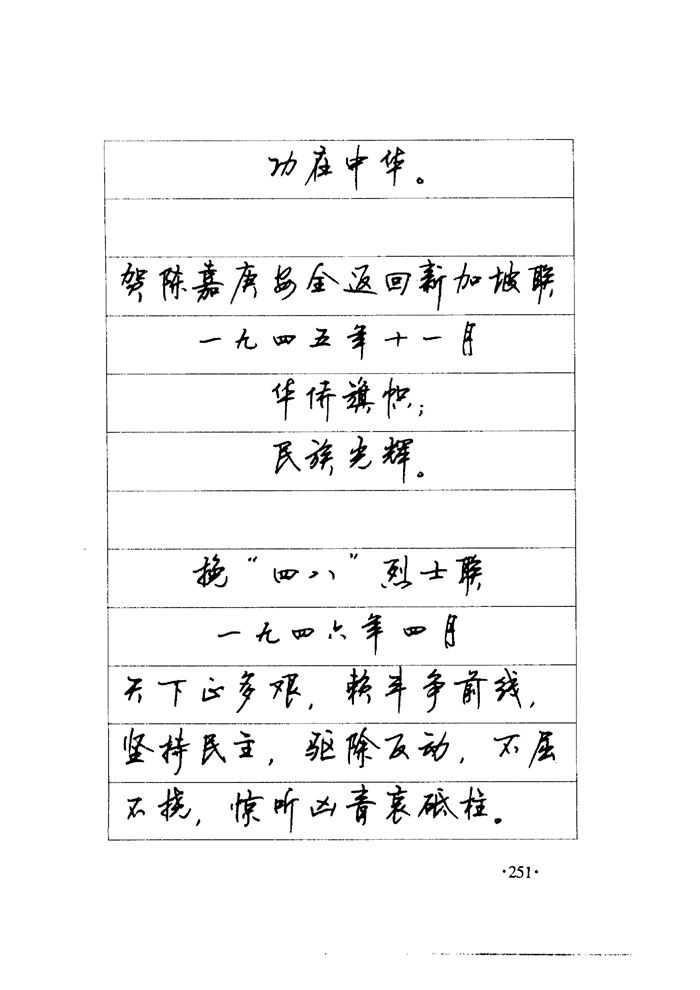 功在中华。
贺陈嘉庚安全返回新加坡联
一九四五年十一月
华侨旗帜；
民族光辉。
挽“四八”烈士联
一九四六年四月
天下正多艰，赖斗争前线，
坚持民主，驱除反动，不屈
不挠，惊听凶音哀砥柱。
·251·